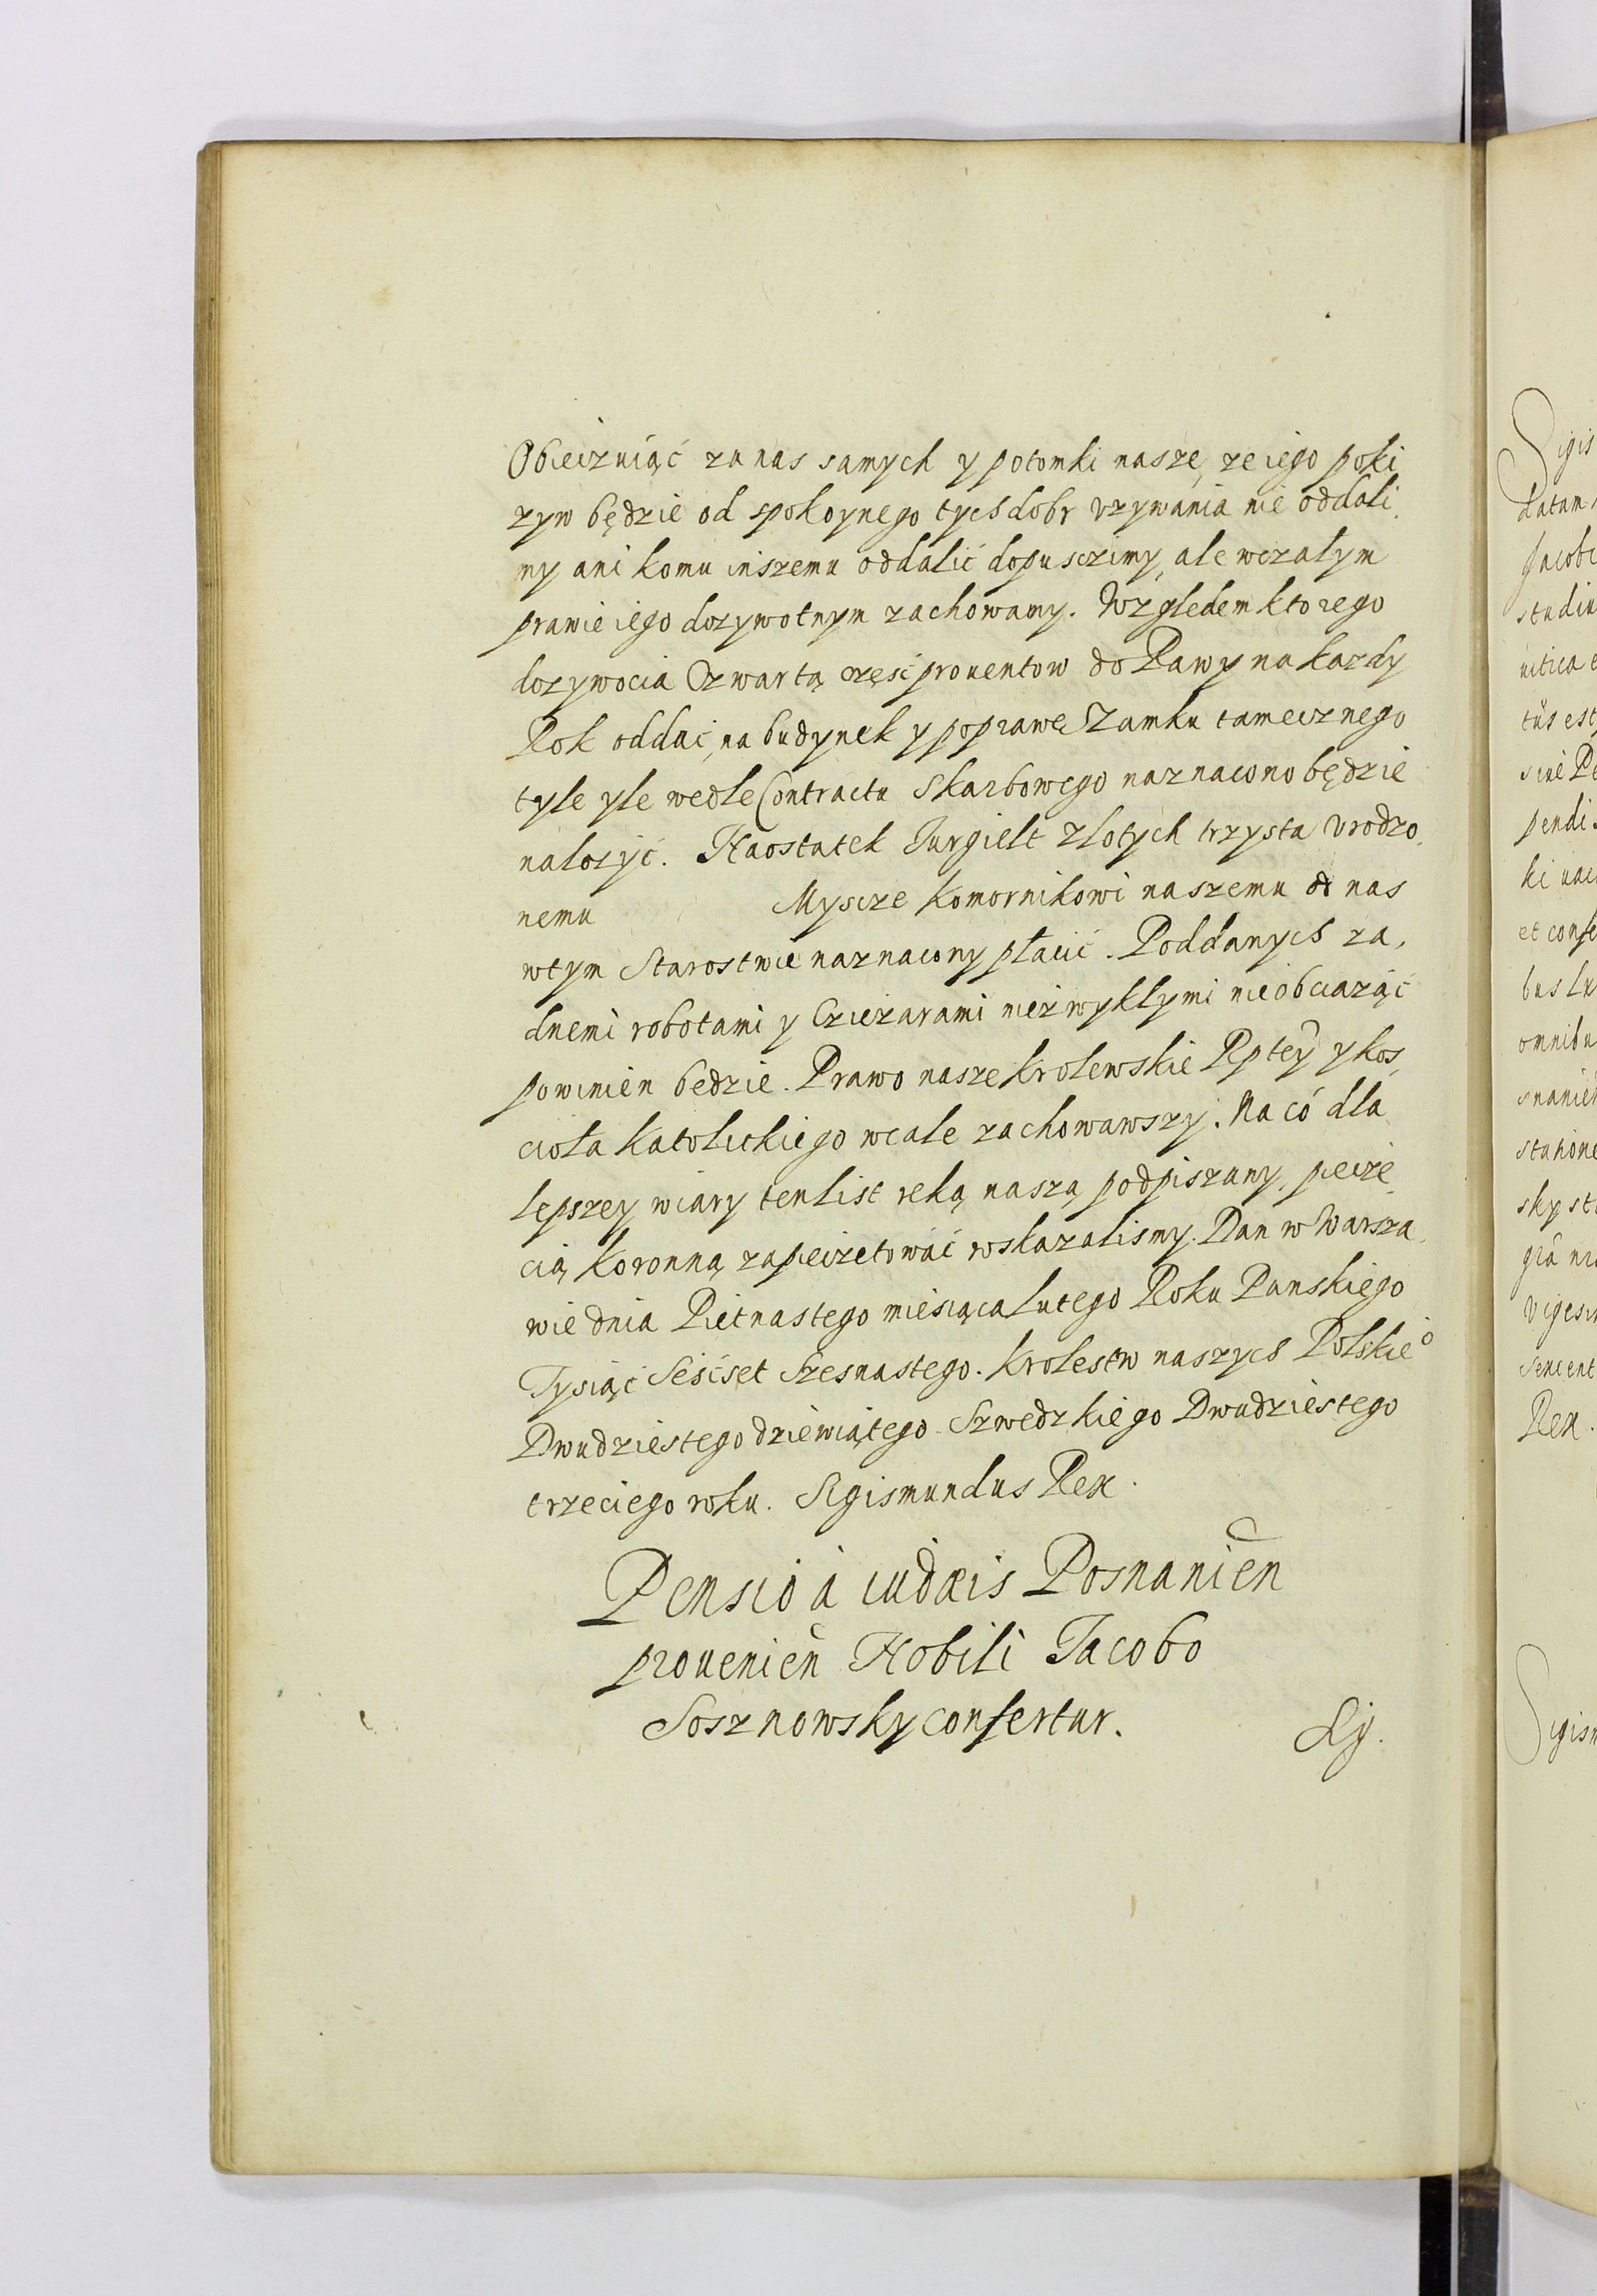 Obieczuiąć za nas samych y potomki nasze, ze iego poki
zyw będzie od spokoynego tych dobr vzywania nie oddali,
my ani komu inszemu oddalić dopusczimy, ale wczałym
prawie iego dozywotnym zachowamy. Względem ktorego
dozywocia Czwartą częsć prouentow do Rawy na kazdy
Rok oddać, na budynek y poprawe Zamku tamecznego
tyle yle wedle Contractu Skarbowego naznacono będzie
nałozyć. Naostatek Iurgielt złotych trzysta vrodzo,
nemu Myscze Komornikowi naszemu od nas
wtym Starostwie naznacony płacić. Poddanych za,
dnemi robotami y Cziezarami niezwykłymi nie obciaząć
powinien będzie. Prawo nasze Krolewskie Rptey y kos,
cioła Katolickiego wcale zachowawszy. Na co dla
lepszey wiary ten list reką naszą podpiszany, pieczę,
cią Koronną zapieczetować roskazalismy. Dan w Warsza,
wie dnia Pietnastego miesiąca Lutego Roku Panskiego
Tysiąc Sesćset Szesnastego. Krolestw naszych Polskie°
Dwudziestego dziewiątego Szwedzkiego Dwudziestego
trzeciego roku. Sigismundus Rex.
Pensio à iudæis Posnanien
prouenien Nobili Jacobo
Sosznowsky confertur.
Sigis
datam
Jacobo
studiu
tus est
siue Pe
pendi
et confe
bus
omnibu
snanien
stations
sky st
Vigesi
Sexcent
Rex.
Sigism